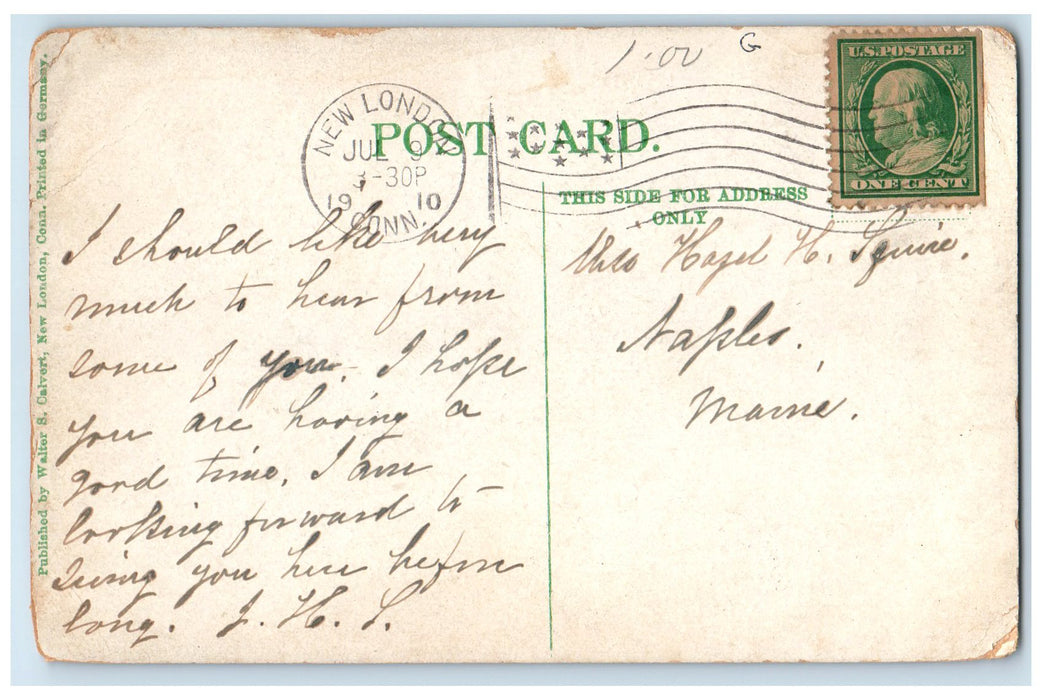 1.00 G
U.S.POSTAGE
ONE CENT
NEW LONDON
JUL 9
-30P
1910
CONN.
POST CARD.
THIS SIDE FOR ADDRESS
ONLY
Published by Walter S. Calvert, New London, Conn. Printed in Germany.
I should like very
much to hear from
some of you. I hope
you are having a
good time. I am
looking forward to
seeing you here before
long. J. H. S.
Miss Hazel H. Squire.
Naples.
Maine.